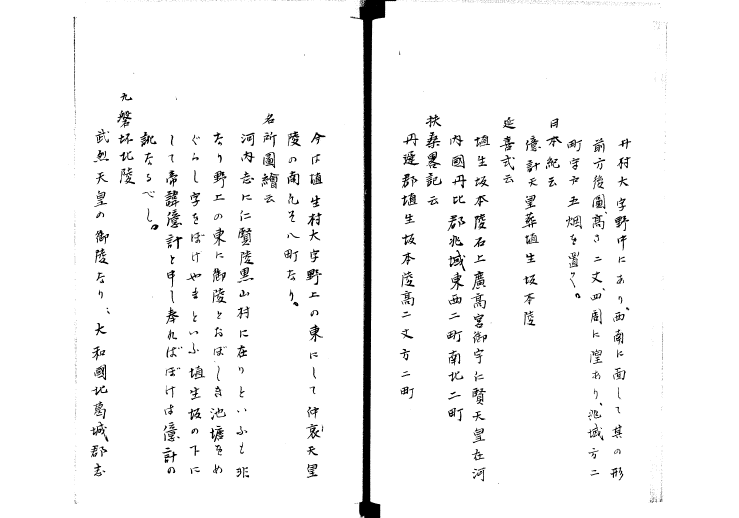 丹村大字野中にあり、西南に面して其の形
前方後圓、高さ二丈、四周に隍あり、兆域方二
町守戸五烟を置く。
日本紀云
億計天皇葬埴生坂本陵
延喜式云
埴生坂本陵石上廣高宮御宇仁賢天皇在河
内國丹比郡兆域東西二町南北二町
扶桑畧記云
丹遲郡埴生坂本陵高二丈方二町
今は埴生村大字野上の東にして仲哀天皇
陵の南凡そ八町なり。
名所圖繪云
河内志に仁賢陵黒山村に在りといふも非
なり野上の東に御陵とおぼしき池塘をめ
ぐらし字をぼけやまといふ埴生坂の下に
して帝諱億計と申し奉ればぼけは億計の
訛なるべし。
九磐坏北陵
武烈天皇の御陵なり、大和國北葛城郡志